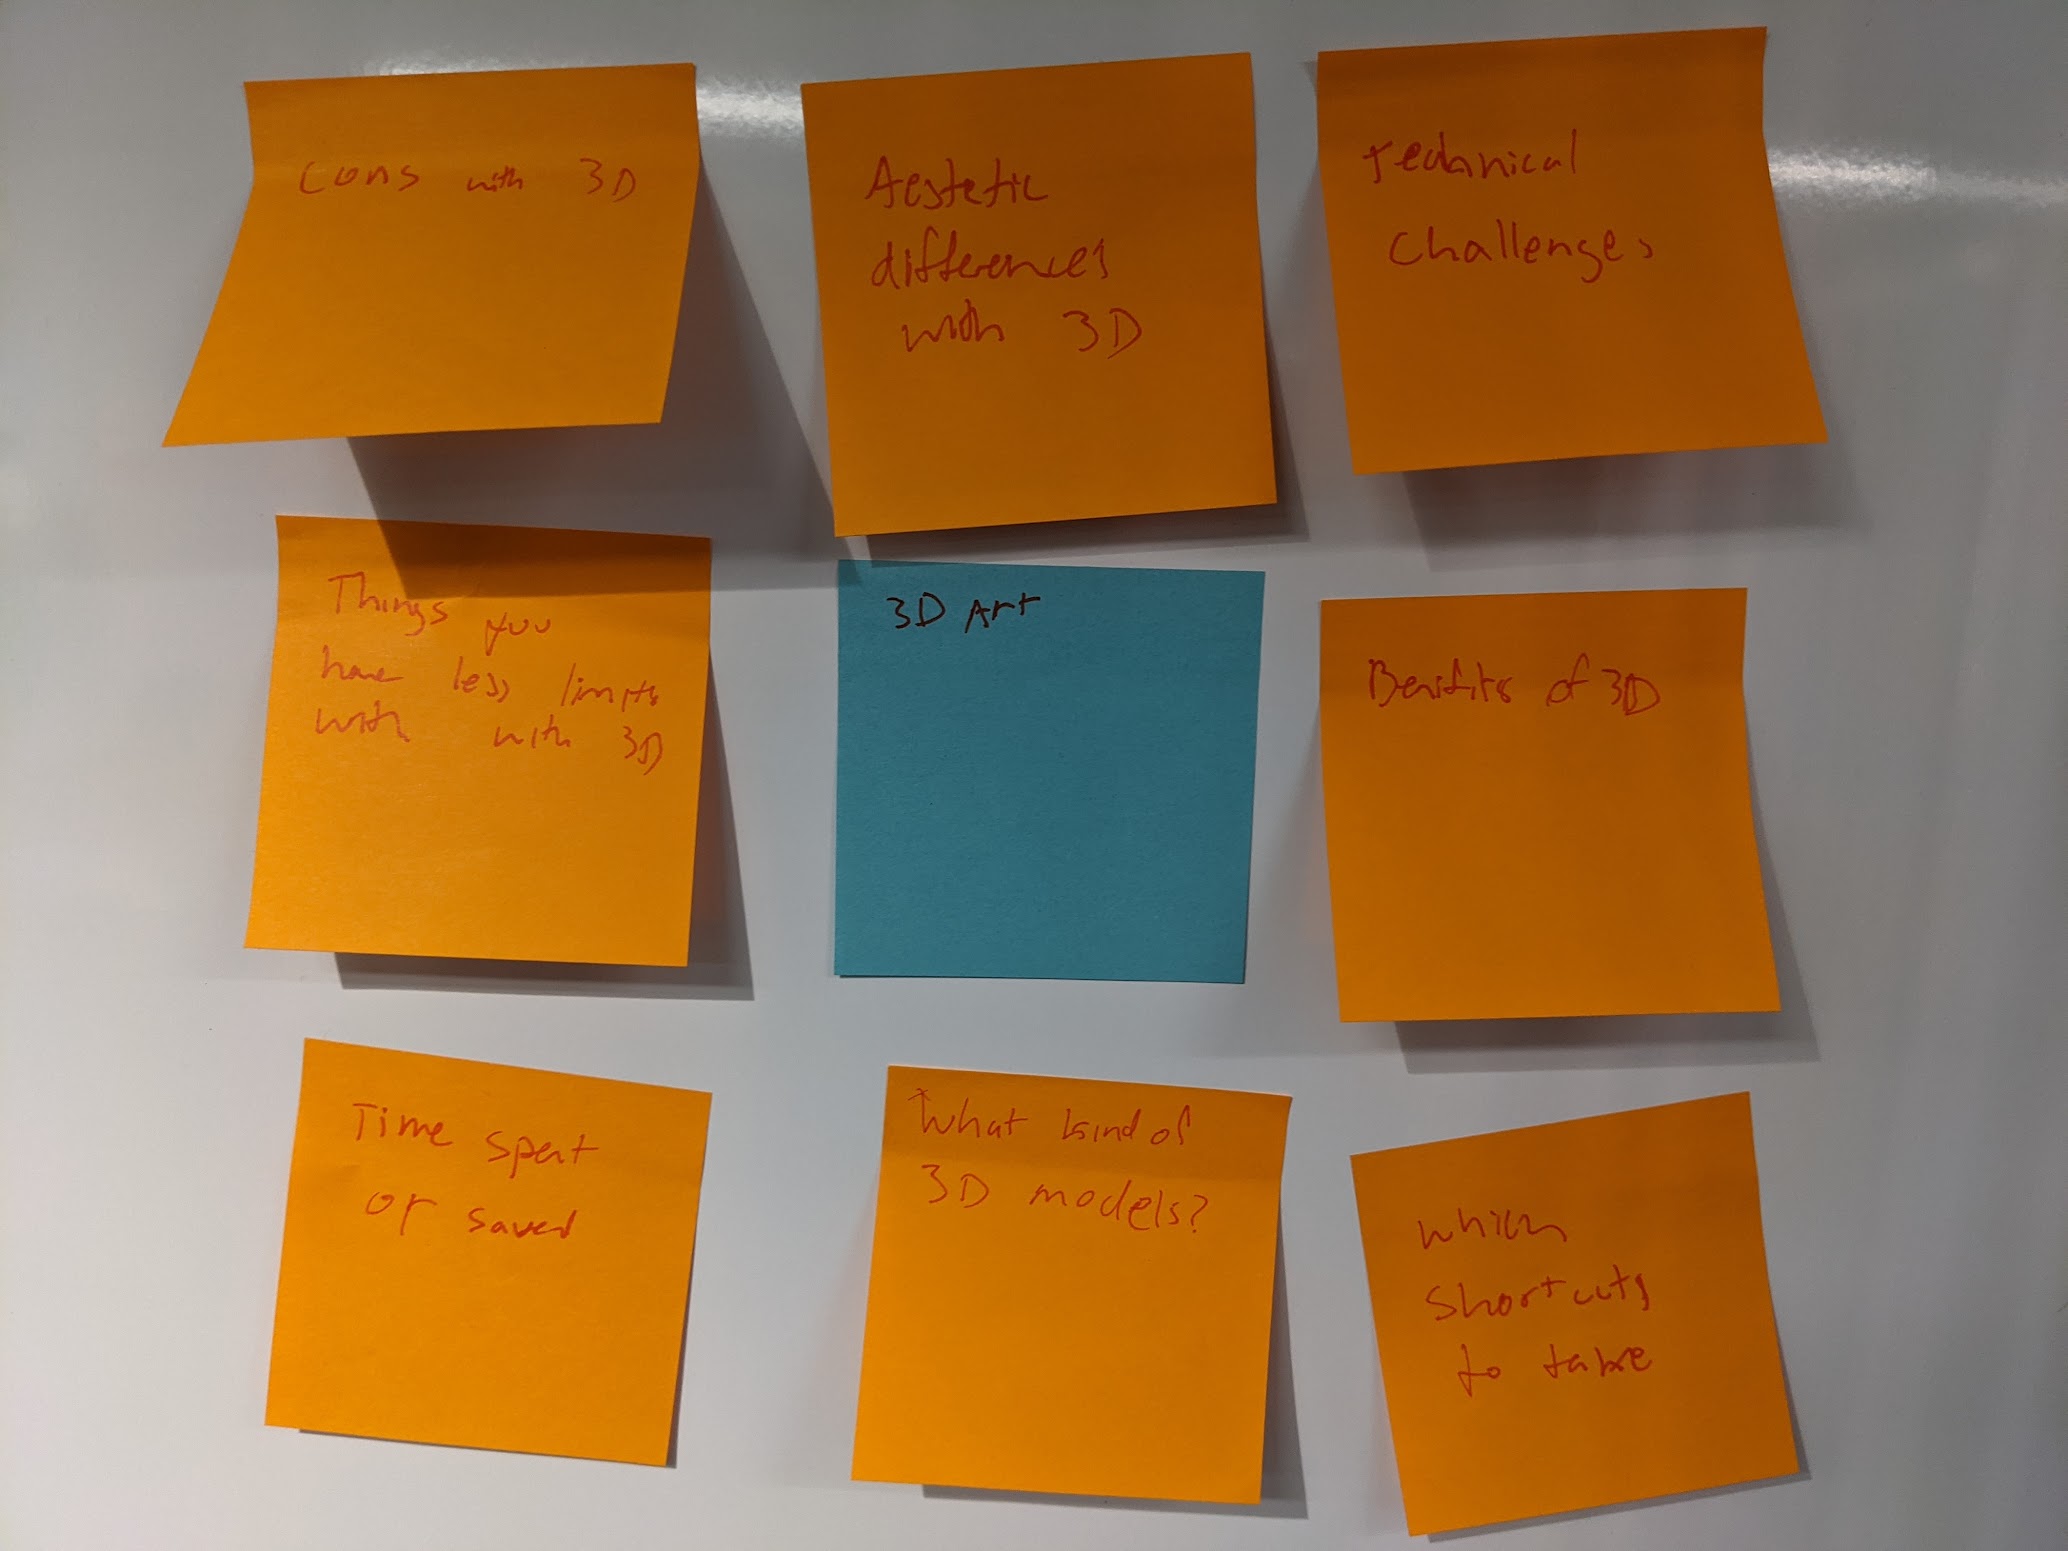 Cons with 3D
Aestetic
differences
with 3D
technical
challenges
Things you
have less limits
with with 3D
3D Art
Benifits of 3D
Time spent
or saved
What kind of
3D models?
which
shortcuts
to take